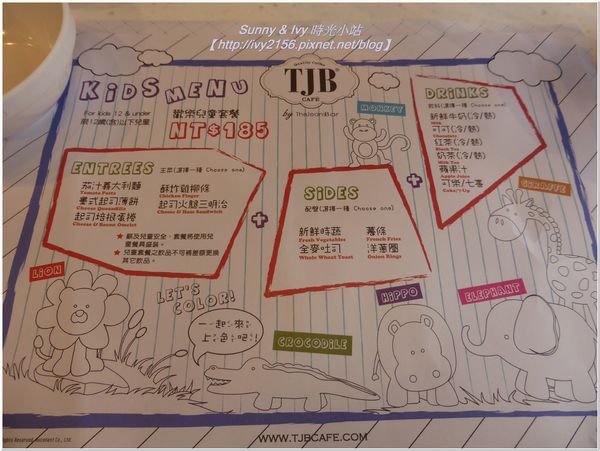 Sunny & Ivy 時光小站
【http://ivy2156.pixnet.net/blog】
KiDS MENU
For kids 12 & under
限12歲(含)以下兒童
歡樂兒童套餐
NT$185
Quality Coffee
TJB®
CAFE
by TheJeansBar
MONKEY
DRiNKS
飲料(選擇一種 Choose one)
新鮮牛奶(冷/熱)
Milk
可可(冷/熱)
Chocolate
紅茶(冷/熱)
Black Tea
奶茶(冷/熱)
Milk Tea
蘋果汁
Apple Juice
可樂/七喜
Coke/7-Up
ENTREES
主菜(選擇一種 Choose one)
茄汁義大利麵
Tomato Pasta
墨式起司薄餅
Cheese Quesadilla
起司培根蛋捲
Cheese & Bacon Omelet
酥炸雞柳條
Chicken Finger
起司火腿三明治
Cheese & Ham Sandwich
★ 顧及兒童安全，套餐將使用兒
童餐具盛裝。
★ 兒童套餐之飲品不可補差額更換
其它飲品。
+
SiDES
配餐(選擇一種 Choose one)
新鮮時蔬
Fresh Vegetables
全麥吐司
Whole Wheat Toast
薯條
French Fries
洋蔥圈
Onion Rings
+
GiRAFFE
LiON
LET'S
COLOR!
一起來
上色吧!
CROCODiLE
HiPPO
ELEPHANT
WWW.TJBCAFE.COM